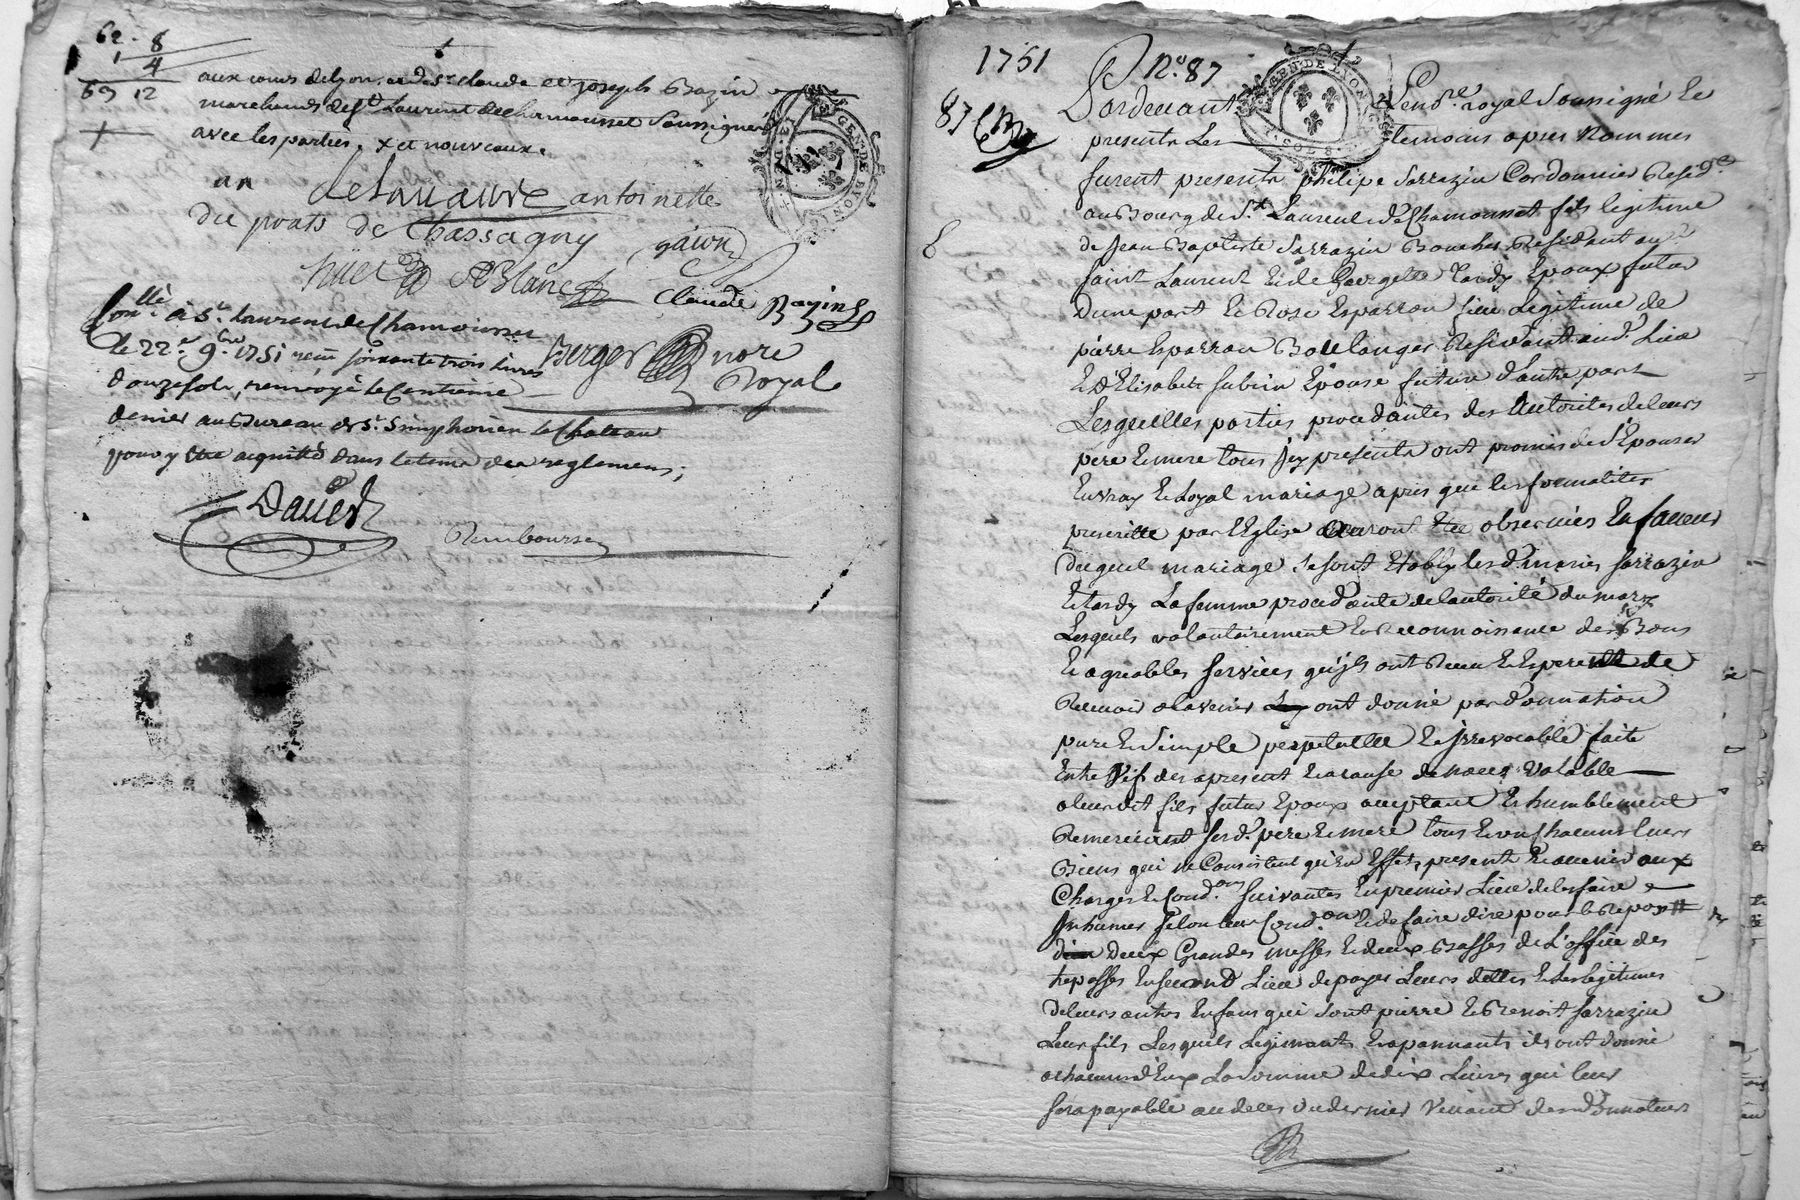 62 . 8
1 4
63 12
aux cours de Lyon, et de Sr Claude et Joseph Bazin
marchands de St Laurent de Chamousset Soussignés
avec les parties. x et nouveaux.
Delavaure antoinette
du prat de Chassagny gàwn
huet LeBlanc
Claude Bazin
Berger nore
Royal
Conllé à St Laurent de Chamousset
le 22e 9bre 1751 reçu soixante trois livres
douze sols, renvoyé le Centieme
denier au Bureau de St Simphorien le Chateau
pour y être acquitté dans le tems des reglemens,
Daved
Rembourse
GEN. DE LYON
1751
No. 87
87
Pardevant Le no.re royal Soussigné Et
presents Les temoins apres Nommes
furent presents philipe Sarrazin Cordonnier Resid.t
au Bourg de St Laurent de Chamousset fils legitime
de Jean Baptiste Sarrazin Boucher Residant aud.
Saint Laurent Et de Georgette Tardy Epoux futur
Dune part Et Rose Esparron fille Legitime de
pierre Esparron Boulanger Residant aud. Lieu
Et D'Elisabeth Epouse future d'autre part
Lesquelles parties procedantes des Autorites de leurs
pere Et mere tous Jcy presents ont promis de S'Epouser
En vray Et Loyal mariage apres que les formalites
prescritte par L'Eglise auront Eté observées En faveur
duquel mariage Se sont Etably les d. maries Sarrazin
Et Tardy La femme procedante de lautorité du mary
Lesquels volontairement En Reconnoissance des Bons
Et agreables Services qu'jls ont Receu Et Esperent de
Recevoir a lavenir ont donné par Donnation
pure Et Simple perpetuelle Et Jrrevocable faite
Entre Vif des apresent Et a cause de noces Valable
a leur dit fils futur Epoux acceptant Et humblement
Remerciant ses d. pere Et mere tous Et un chacuns leurs
Biens qui ne Consistent qu'En Effets present Et avenir aux
Charges Et Cond.ons Suivantes En premier Lieu de les faire
Jnhumer Selon leur Cond.on Et de faire dire pour le Repos #
Deux Grandes messes Et deux Basses de L'office des
trepasses En second Lieu de payer Leurs dettes Et Les legitimes
de leurs autres Enfans qui Sont pierre Et Benoit Sarrazin
Leur fils Lesquels Legimants Et apannants ils ont donné
a chacun d'Eux La Somme de dix Livres qui leur
Sera payable au deces du dernier Vivant des d. Donnateurs